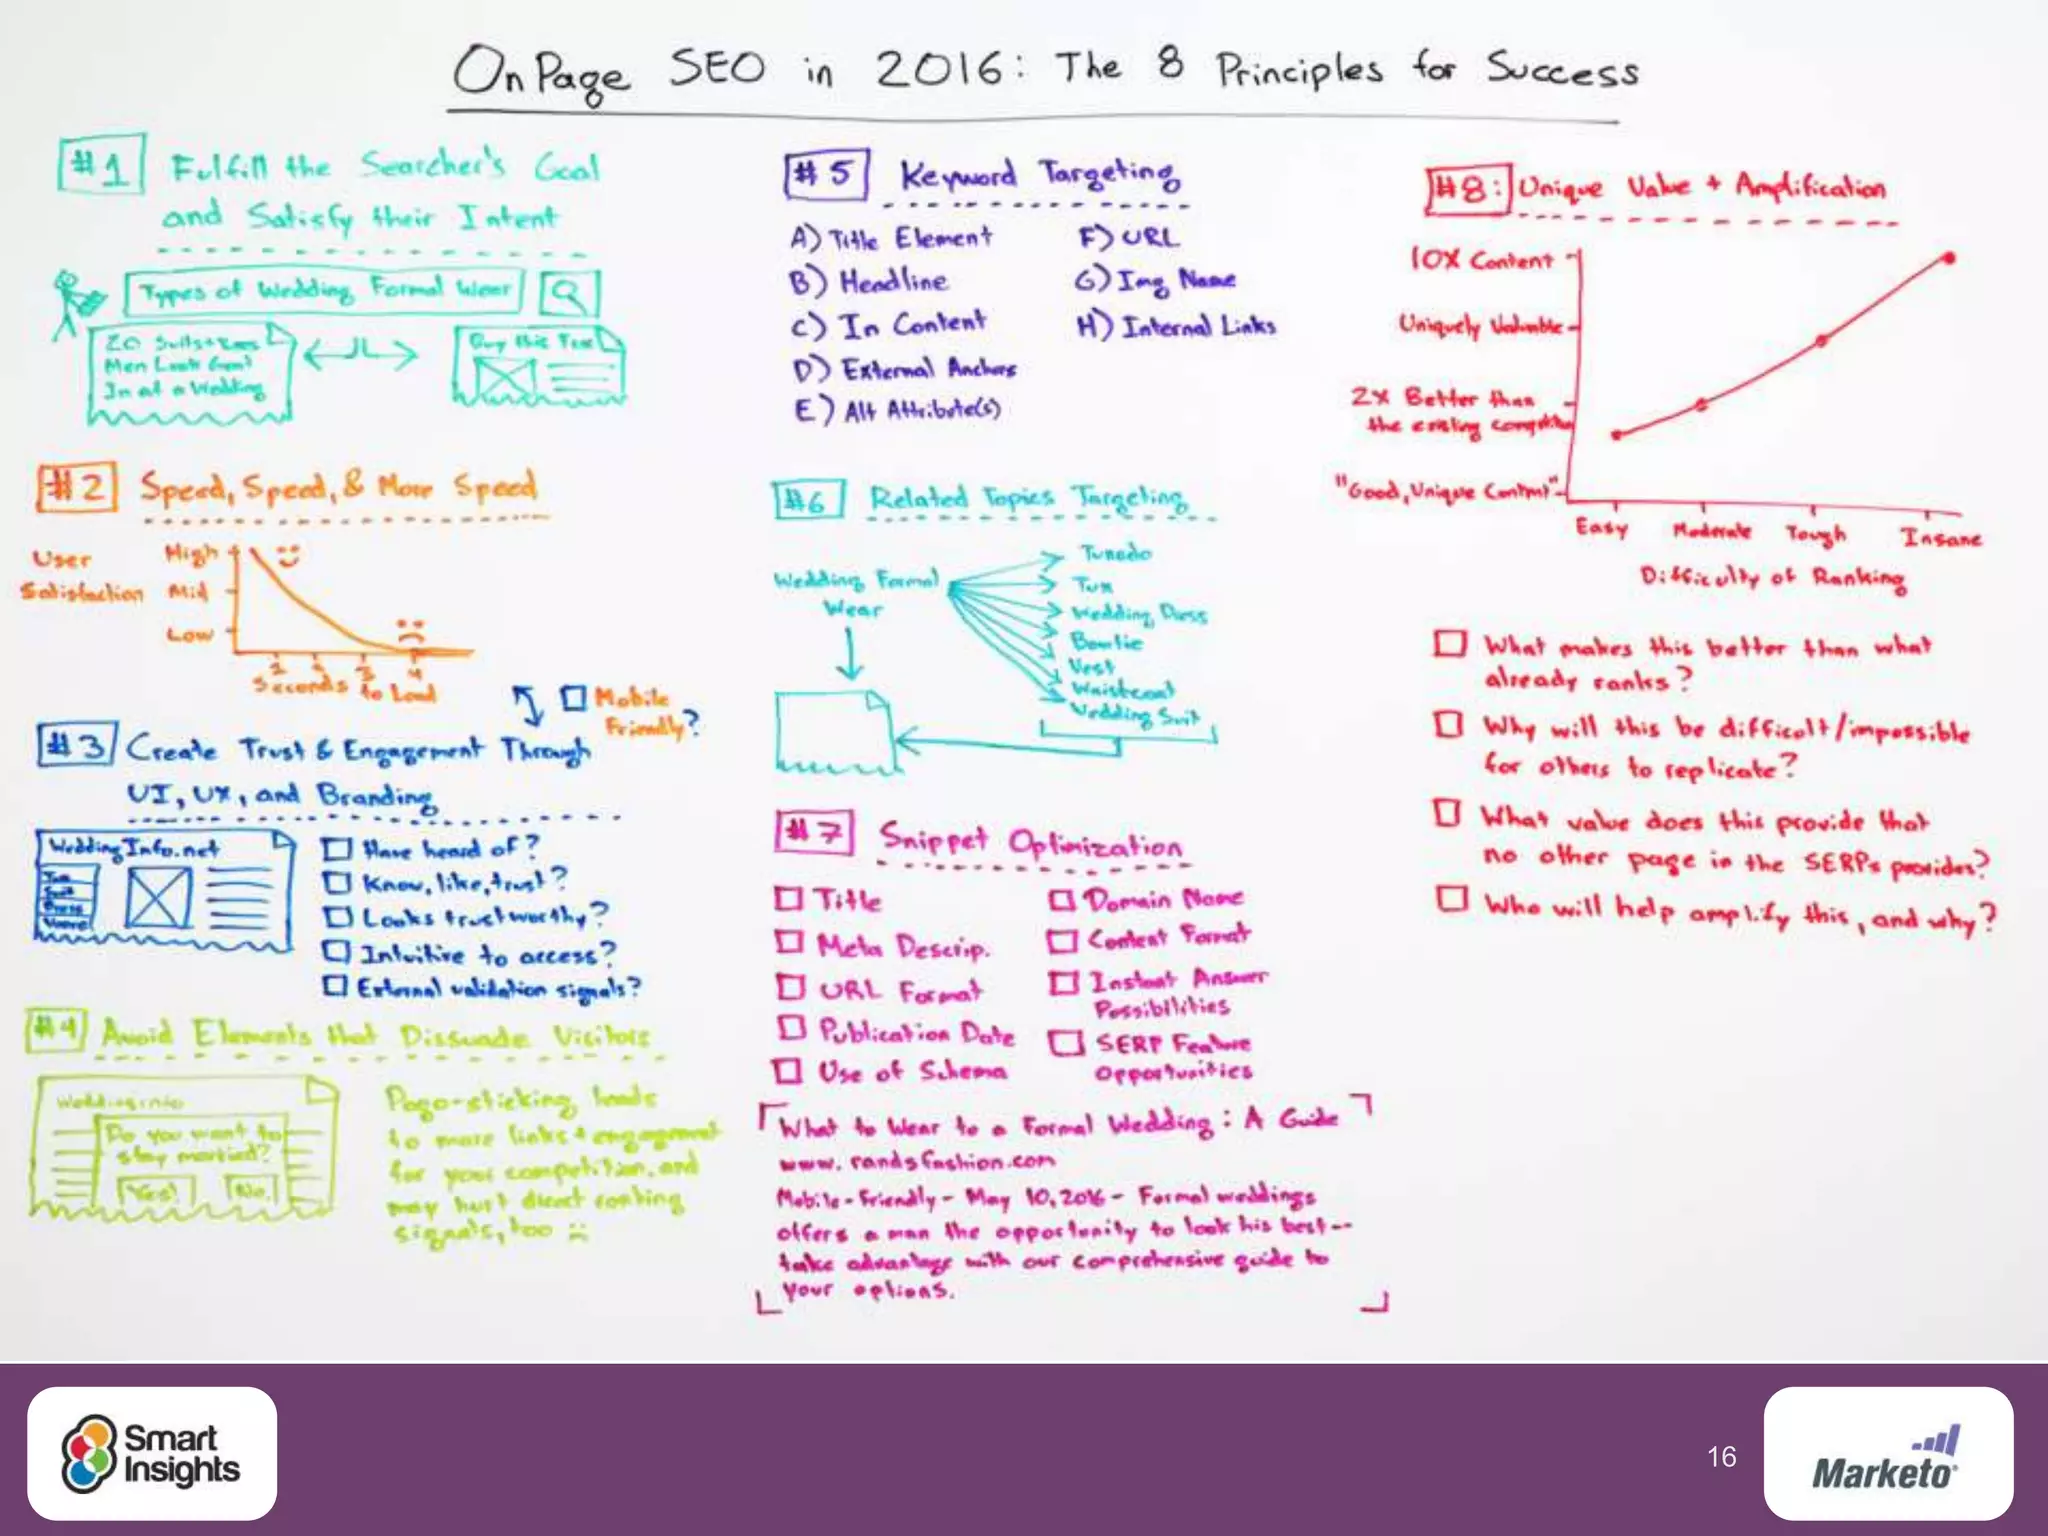 On Page SEO in 2016: The 8 Principles for Success
#1 Fulfill the Searcher's Goal
and Satisfy their Intent
Types of Wedding Formal Wear
20 Suits +
Men Look Great
In at a Wedding
Buy this Tux
#2 Speed, Speed, & More Speed
User
Satisfaction
High
Mid
Low
1 2 3 4
Seconds to Load
Mobile
Friendly?
#3 Create Trust & Engagement Through
UI, UX, and Branding
WeddingInfo.net
Tux
Suit
Dress
Have heard of?
Know, like, trust?
Looks trustworthy?
Intuitive to access?
External validation signals?
#4 Avoid Elements that Dissuade Visitors
Do you want to
stay married?
Yes! No.
Pogo-sticking leads
to more links + engagement
for your competition, and
may hurt direct ranking
signals, too
#5 Keyword Targeting
A) Title Element
B) Headline
C) In Content
D) External Anchors
E) Alt Attribute(s)
F) URL
G) Img Name
H) Internal Links
#6 Related Topics Targeting
Wedding Formal
Wear
Tuxedo
Tux
Wedding Dress
Bowtie
Vest
Waistcoat
Wedding Suit
#7 Snippet Optimization
Title
Meta Descrip.
URL Format
Publication Date
Use of Schema
Domain Name
Content Format
Instant Answer
Possibilities
SERP Feature
Opportunities
What to Wear to a Formal Wedding: A Guide
www.randsfashion.com
Mobile-Friendly - May 10, 2016 - Formal weddings
offers a man the opportunity to look his best--
take advantage with our comprehensive guide to
your options.
#8: Unique Value + Amplification
10X Content
Uniquely Valuable
2X Better than
the existing competition
"Good, Unique Content"
Easy Moderate Tough Insane
Difficulty of Ranking
What makes this better than what
already ranks?
Why will this be difficult/impossible
for others to replicate?
What value does this provide that
no other page in the SERPs provides?
Who will help amplify this, and why?
Smart
Insights
16
Marketo